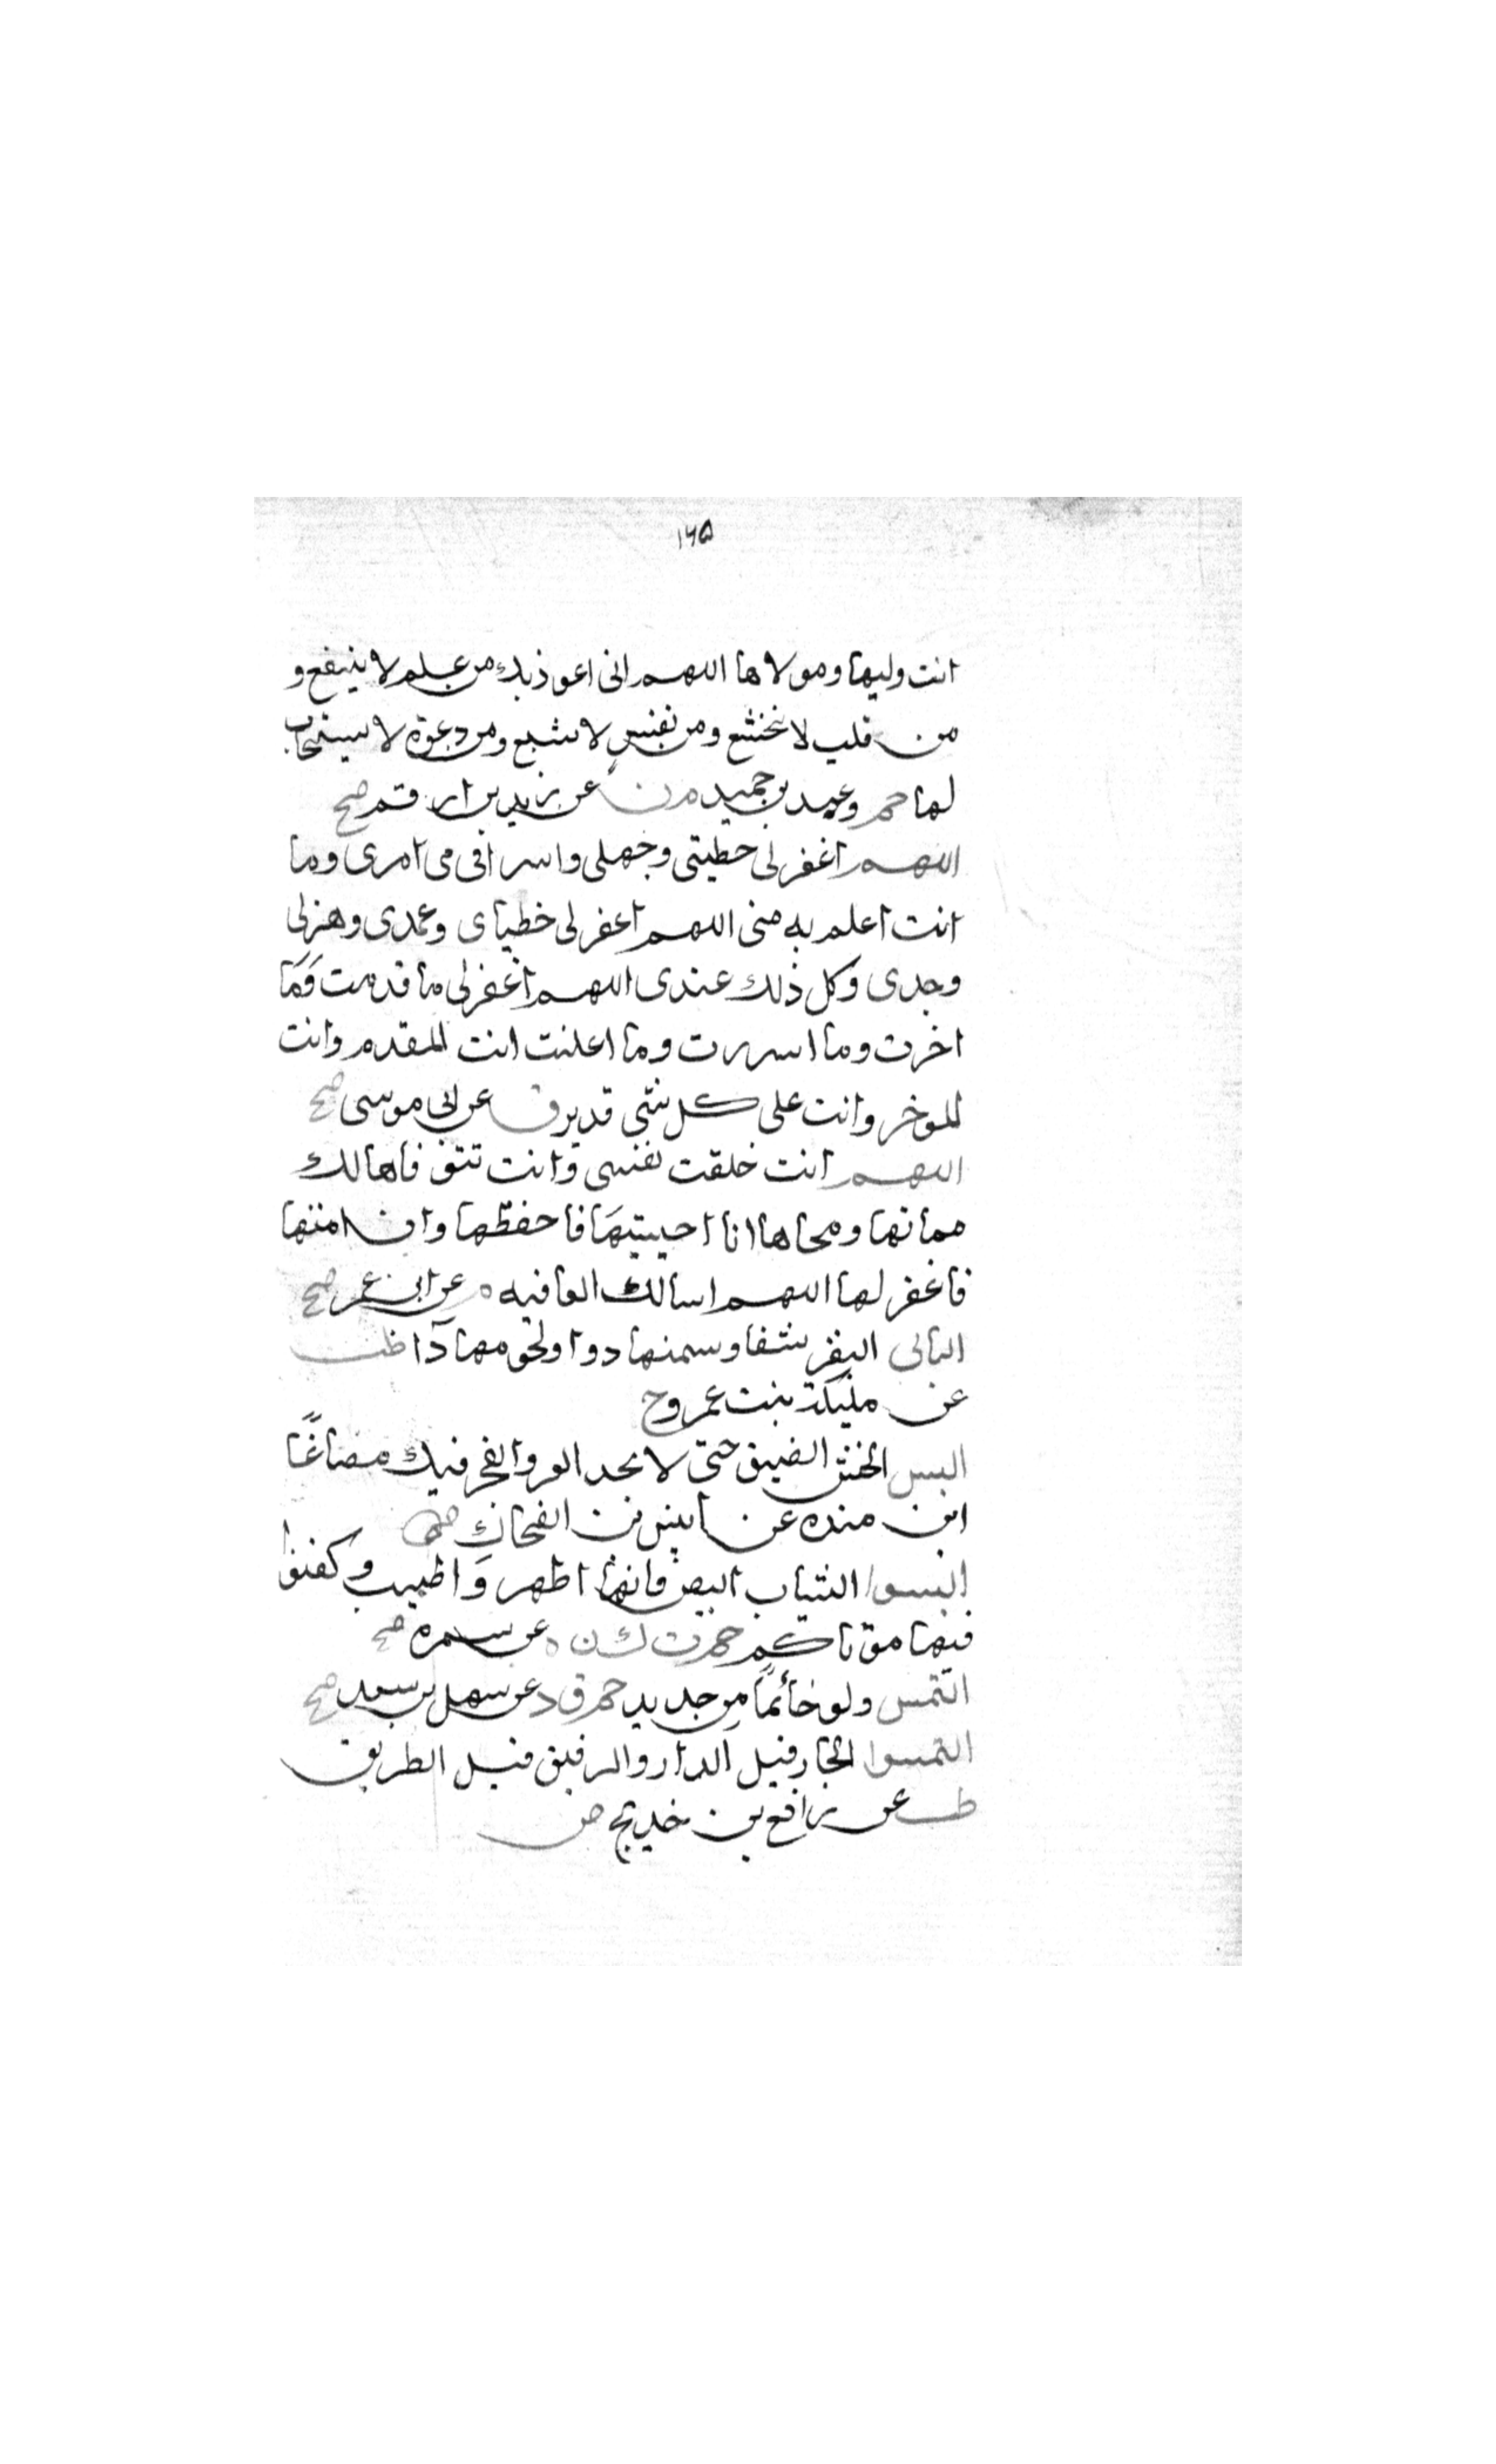 ١٦٥
انت وليها ومولاها اللهم انى اعوذ بك من علم لا ينفع و
من قلب لا يخشع ومن نفس لا تشبع ومن دعوة لا يستجاب
لها حم وعبد بن حميد م ن عن زيد بن ارقم صح
اللهم اغفر لى خطيتى وجهلى واسرافى فى امرى وما
انت اعلم به منى اللهم اغفر لى خطياى وعمدى وهزلى
وجدى وكل ذلك عندى اللهم اغفر لى ما قدمت وَمَا
اخرت وما اسررت وما اعلنت انت المقدم وانت
الموخر وانت على كل شى قدير ق عن ابى موسى صح
اللهم انت خلقت نفسى وانت تتوفاها لك
مماتها ومحياها ان احييتهَا فاحفظها وان امتها
فاغفر لها اللهم اسالك العافيه م عن ابن عمر صح
البان البقر شفا وسمنها دوا ولحومها دآ طب
عن مليكة بنت عمرو ح
البس الخشن الضيق حتى لا يجد العز والفخر فيك مساغًا
ابن منده عن انيس بن الضحاك ض
البسوا الثياب البيض فانها اطهر وَاطيب وكفنوا
فيها موتاكم حم ت ك ن ه عن سمره صح
التمس ولو خاتمًا من حديد حم ق د عن سهل بن سعد صح
التمسوا الجار قبل الدار والرفيق قبل الطريق
طب عن رافع بن خديج ض